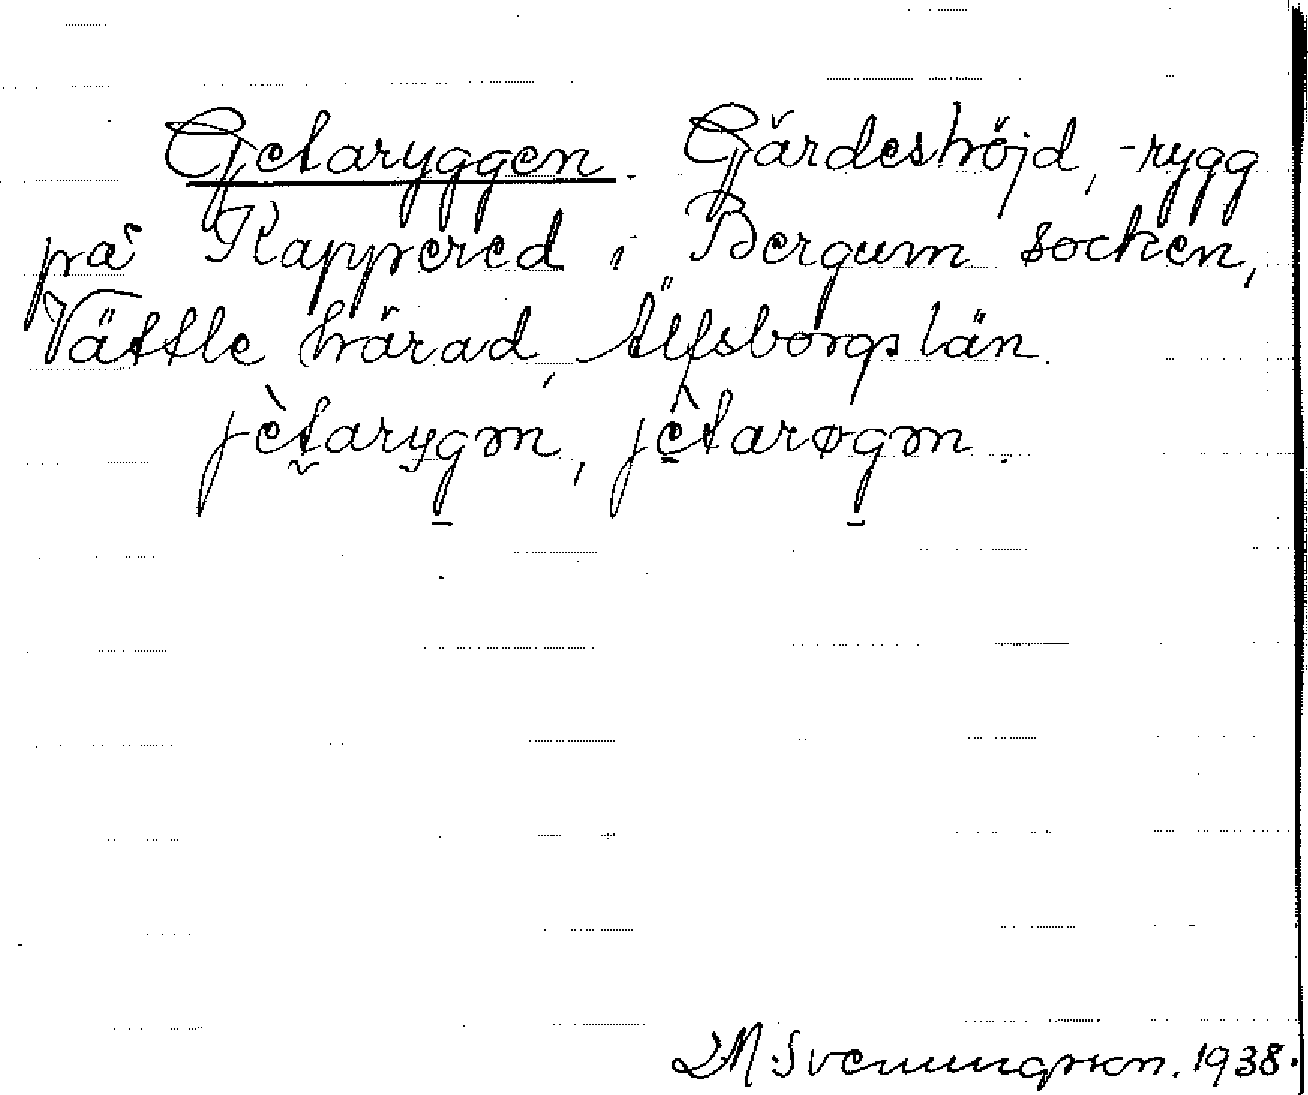 Getaryggen. Gärdeshöjd, -rygg
på Rappered i Bergum socken,
Vättle härad, Älfsborgs län.
jètarygən, jètarøgən.
Svenungsson. 1938.